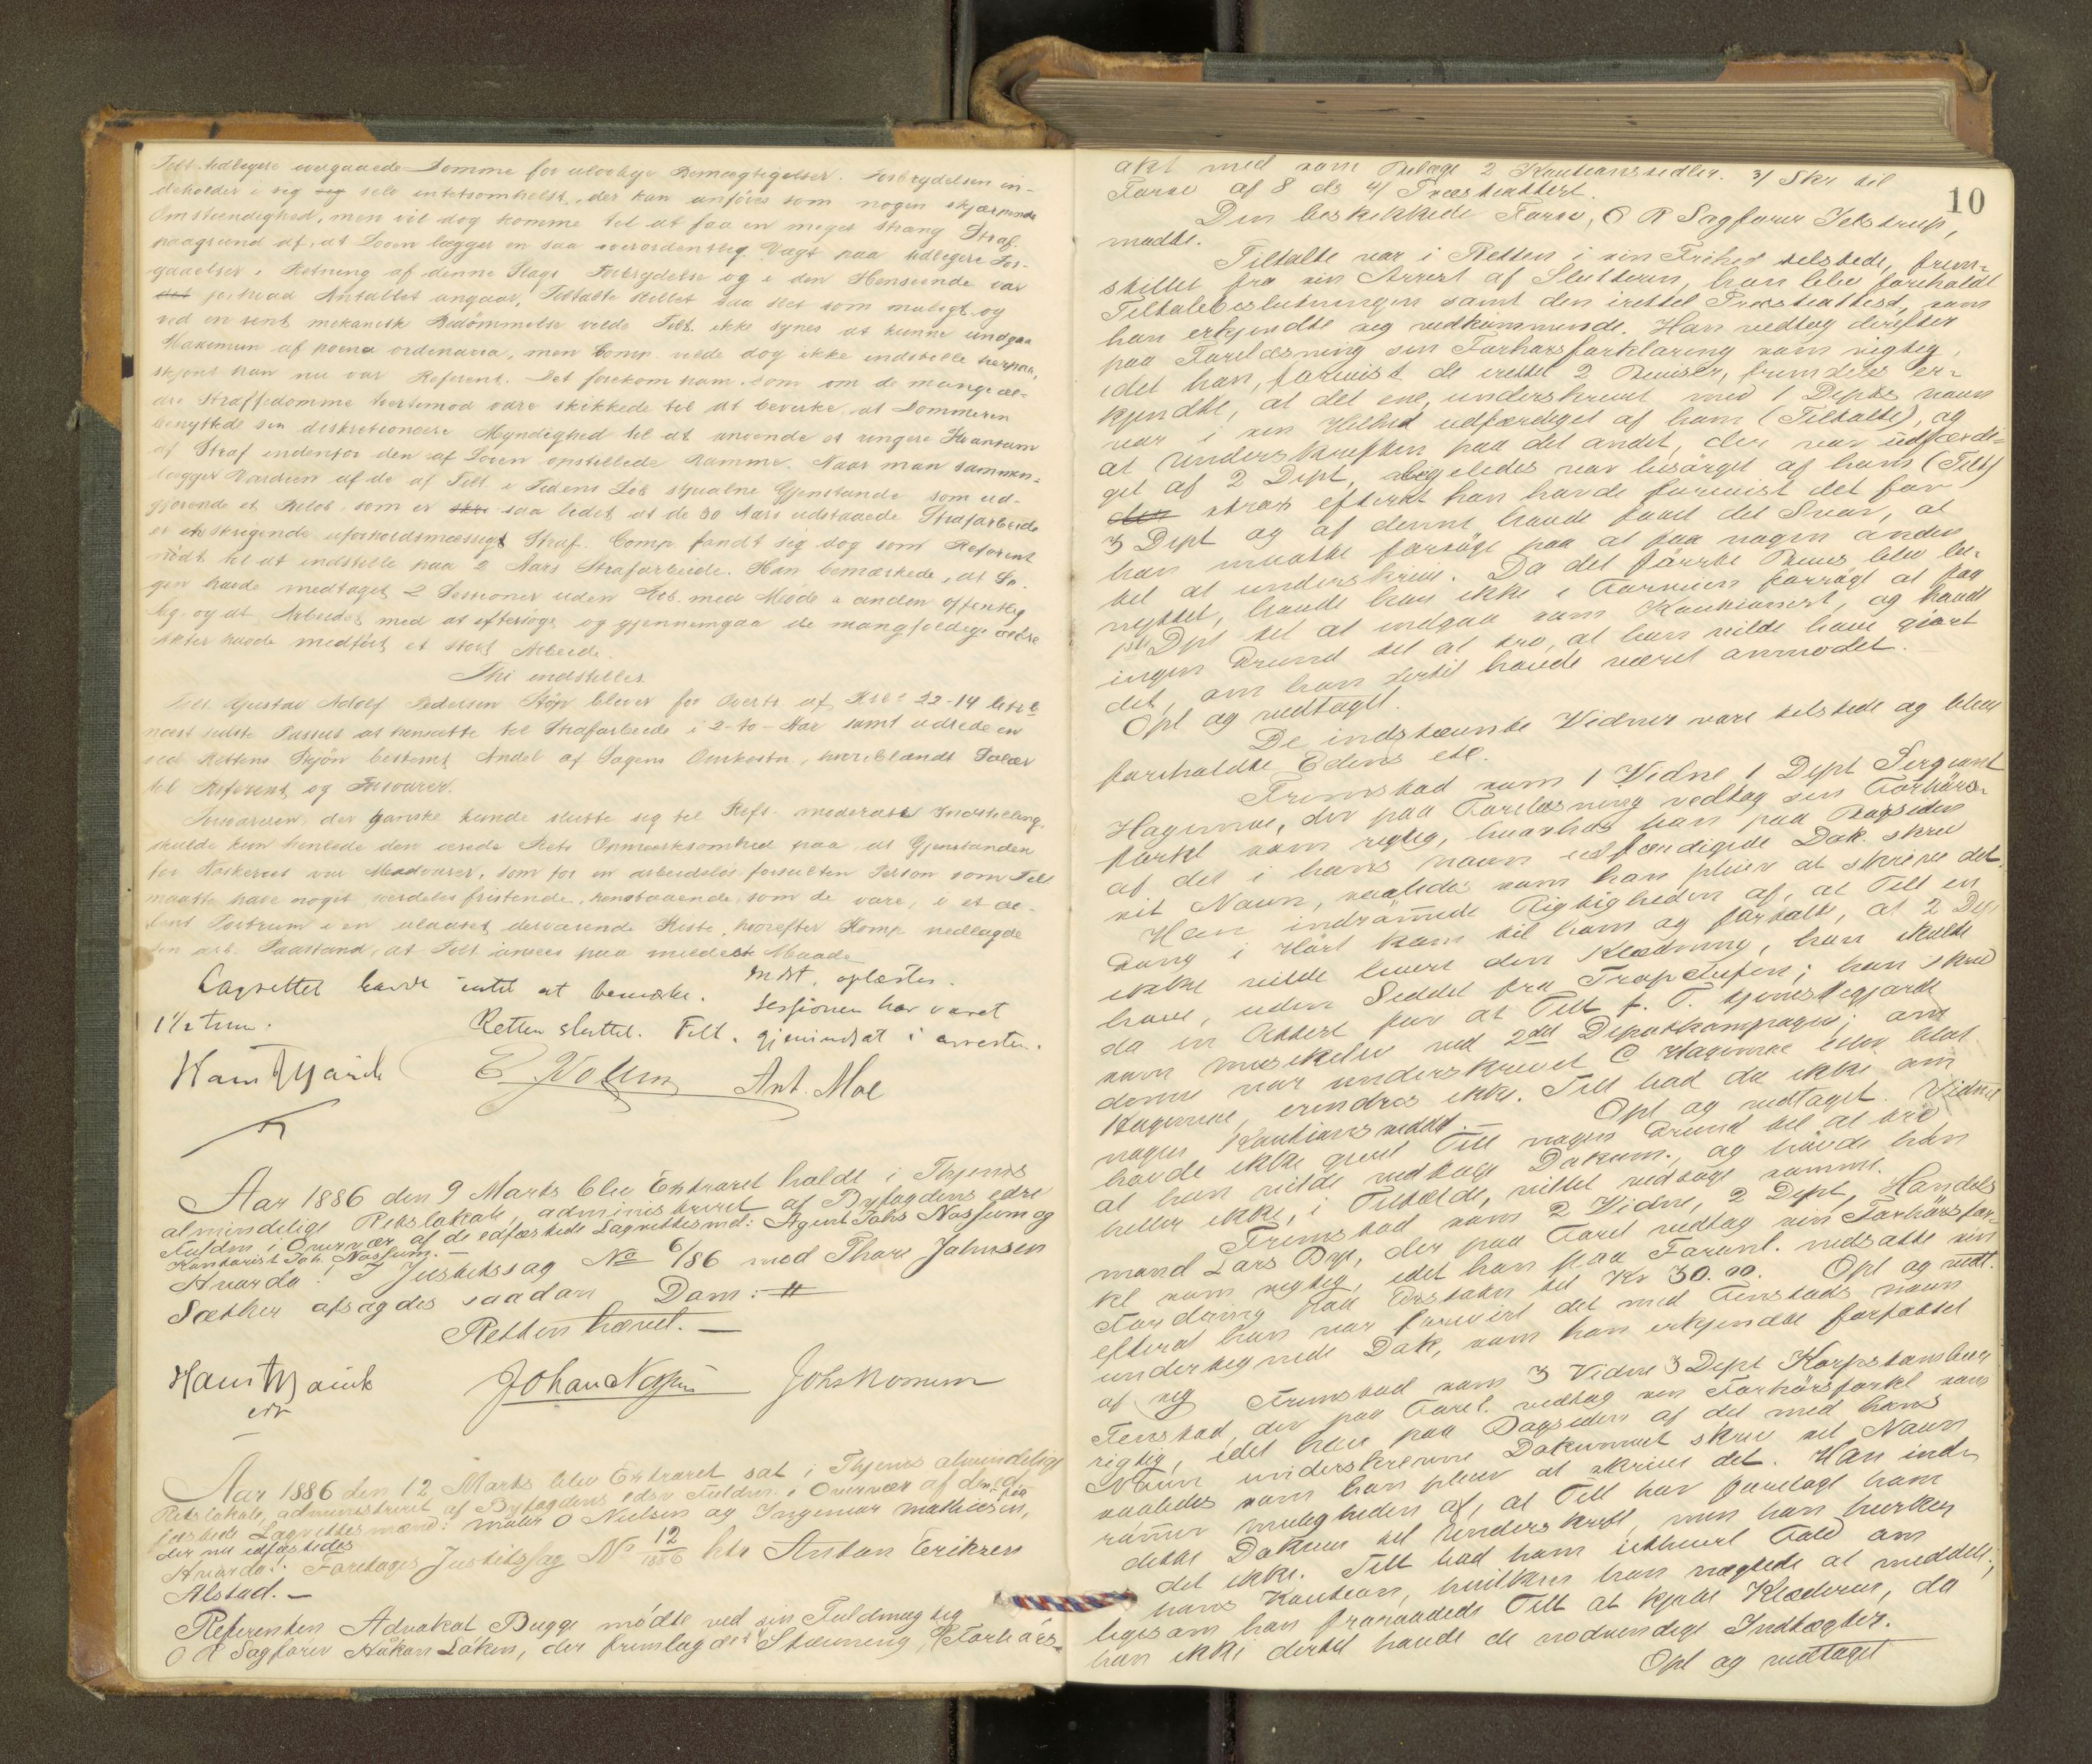 Tidligere overgaaede Domme for ulovlige Bemægtigelser. Forbrydelsen in-
deholder i sig selv intetsomhelst, der kan anføres som nogen skjærpende
Omstændighed, men vil dog komme til at faa en meget strang Straf
paagrund af, at Loven lægger en saa overordentlig Vægt paa tidligere For-
gaaelser i Retning af denne Slags Forbrydelse og i den Henseende var
forhvad Antallet angaar, Tiltalte stillet saa slet som muligt og
ved en rent mekanisk Bedömmelse vilde Tilt. ikke synes at kunne undgaa
Maximum af poena ordinaria, men Comp. vilde dog ikke indstille herpaa,
skjønt han nu var Referent. Det forekom ham som om de mange æl-
dre Straffedomme tvertimod vare skikkede til at bevirke, at Dommeren
benyttede sin diskretionære Myndighed til at anvende et ringere Kvantum
af Straf indenfor den af Loven opstillede Ramme. Naar man sammen-
lægger Værdien af de af Tilt. i Tidens Løb stjaalne Gjenstande som ud-
gjørende et Beløb, som er saa lidet at de 30 Aars udstaaede Strafarbeide
er en skrigende uforholdsmæssigt Straf. Comp. fandt sig dog som Referent
nödt til at indstille paa 2 Aars Strafarbeide. Han bemærkede, at Sa-
gen havde medtaget 2 Sessioner uden Forb. med Møde i anden offentlig
Sag og at Arbeidet med at eftersøge og gjennemgaa de mangfoldige ældre
Akter havde medført et stort Arbeide.
Thi indstilles
Tilt. Gustav Adolf Pedersen Støp bliver for Overtr. af Krl's 22-14 litr b
næst sidste Passus at hensætte til Strafarbeide i 2-to-Aar samt udrede en
ved Rettens Skjön bestemt Andel af Sagens Omkostn, hvoriblandt Salær
til Referent og Forsvarer.
Forsvareren, der ganske kunde slutte sig til Refts moderate Indstilling,
skulde kun henlede den ærede Rets Opmærksomhed paa, at Gjenstanden
for Naskeriet var Madvarer, som for en arbeidslös forsulten Person som Tilt
maatte have noget særdeles fristende, henstaaende, som de vare, i et aa-
bent Portrum i en ulaaset derværende Kiste, hvorefter Komp. nedlagde
den Paastand, at Tilt. ansees paa mildeste Maade
Lagrettet havde intet at bemærke. Indst. oplæstes.
1½ time. Sessionen har varet
Retten sluttet. Tilt. gjenindsat i arresten.
E. Nolem Ant. Moe
Aar 1886 den 9 Marts blev Extraret holdt i Thjems
almindelige Retslokale, administreret af Byfogdens edsv
Fuldm. i Overvær af de edfæstede Lagrettesmd: Agent Johs Nossum og
Kontorist Joh. Nossum. —
Hvorda! I Justitssag No 6/86 mod Thore Johnsen
Sæther afsagdes saadan Dom: —
Retten hævet. —
Aar 1886 den 12 Marts blev Extraret sat i Thjems almindelige
Retslokale, administreret af Byfogdens edsv Fuldm. i Overvær af de
edfæstede Lagrettesmænd: maler O Nielsen og Ingemar Mathiesen,
der nu edfæstedes
Hvorda! Foretoges Justitssag No 12/1886 ktr Anton Eriksen
Alstad. —
Referenten Advokat Bugge mödte ved sin Fuldmægtig
O R Sagfører Håkon Löken, der fremlagde: Stævning, Forhörs-
10
akt med som Bilage 2 Kautionssedler. 3/ Skr til
Forsv af 8 ds 4/ Præsteattest.
Den beskikkede Forsv, O R Sagfører Jelstrup,
mødte.
Tiltalte var i Retten i sin Frihed tilstede, frem-
stillet fra sin Arrest af Slutteren, han blev foreholdt
Tiltalebeslutningen samt den irettel Præsteattest, som
han erkjendte sig vedkommende. Han vedtog derefter
paa Forelæsning sin Forhørsforklaring som rigtig,
idet han, forevist de irettel 2 Beviser, fremdeles er-
kjendte, at det ene, underskrevet med 1 Depts navn
var i sin Helhed udfærdiget af ham (Tiltalte), og
at Underskriften paa det andet, der var udfærdi-
get af 2 Dept, ligeledes var besörget af ham (Tilt)
strax efterat han havde forevist det for
3 Dept og af denne havde faaet det Svar, at
han maatte forsöge paa at faa nogen anden
til at underskrive. Da det förste Bevis blev be-
nyttet, havde han ikke i Forveien forsøgt at faa
1ste Dpt til at indgaa som Kautionist, og havde
ingen Grund til at tro, at han vilde have gjort
det, om han dertil havde været anmodet. —
Opl og vedtaget.
De indstævnte Vidner vare tilstede og blev
foreholdte Edens etc.
Fremstod som 1 Vidne 1 Dept Sergeant
Hagemoe, der paa Forelæsning vedtog sin Forhörs-
forkl som rigtig, hvorhos han paa Bagsiden
af det i hans navn udfærdigede Dok. skrev
sit Navn, saaledes som han pleier at skrive det.
Han indrømmede Rigtigheden af, at Tilt en
Gang i Høst kom til ham og fortalte, at 2 Dept
ikke vilde levere den Klædning, han skulde
have, uden Seddel fra Tropchefen; han skrev
da en Attest for at Tilt f. T. tjenestegjorde
som musikelev ved 2det Depotkompagni; om
denne var underskrevet C Hagemoe eller blot
Hagemoe, erindres ikke. Tilt bad da ikke om
nogen Kautionsseddel. — Opl og vedtaget. Vidnet
havde ikke givet Tilt nogen Grund til at tro
at han vilde vedtage Dokum., og havde han
heller ikke, i Tilfælde, villet vedtage samme.
Fremstod som 2 Vidne, 2 Dept, Handels
mand Lars Bye, der paa Forel vedtog sin Forhörsfor-
kl som rigtig, idet han paa Foranl. nedsatte sin
Fordring paa Erstatn til Kr 30.00. Opl og vedt.
efterat han var forevist det med Fenstads navn
undertegnede Dok, som han erkjendte forfattet
af sig
Fremstod som 3 Vidne 3 Dept Korpstambour
Fenstad, der paa Forel. vedtog sin Forhörsforkl som
rigtig, idet han paa Bagsiden af det med hans
Navn underskrevne Dokument skrev sit Navn
saaledes som han pleier at skrive det. Han ind-
rømmer muligheden af, at Tilt har forelagt ham
dette Dokum til Underskrift, men han husker
det ikke. Tilt bad ham iethvert Fald om
hans Kaution, hvilken han nægtede at meddele,
ligesom han fraraadede Tilt at kjøbe Klæderne, da
han ikke dertil havde de nødvendige Indtægter.
Opl og vedtaget